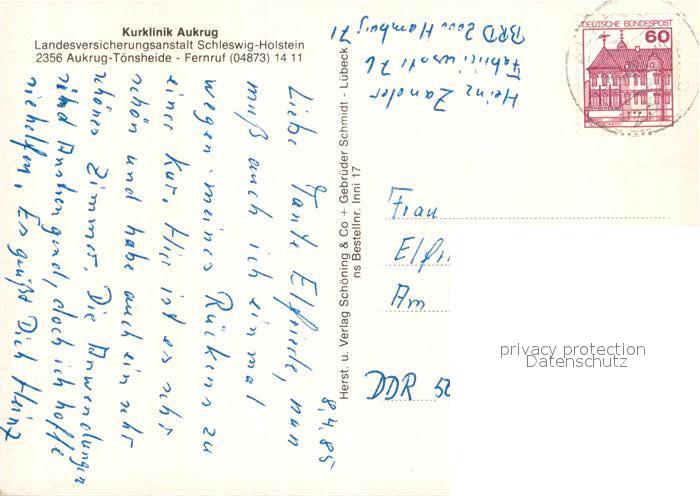 Kurklinik Aukrug
Landesversicherungsanstalt Schleswig-Holstein
2356 Aukrug-Tönsheide - Fernruf (04873) 14 11
8.4.85
Liebe Tante Elfriede, nun
muß auch ich einmal
wegen meines Rückens zu
einer Kur. Hier ist es sehr
schön und habe auch ein sehr
schönes Zimmer. Die Anwendungen
sind anstrengend, doch ich hoffe
sie helfen. Es grüßt Dich Heinz
Herst. u. Verlag Schöning & Co + Gebrüder Schmidt - Lübeck
ns Bestellnr. Inni 17
Heinz Zander
76
BRD 2000 Hamburg 71
DEUTSCHE BUNDESPOST
60
Frau
Elfri
Am
DDR 50
privacy protection
Datenschutz